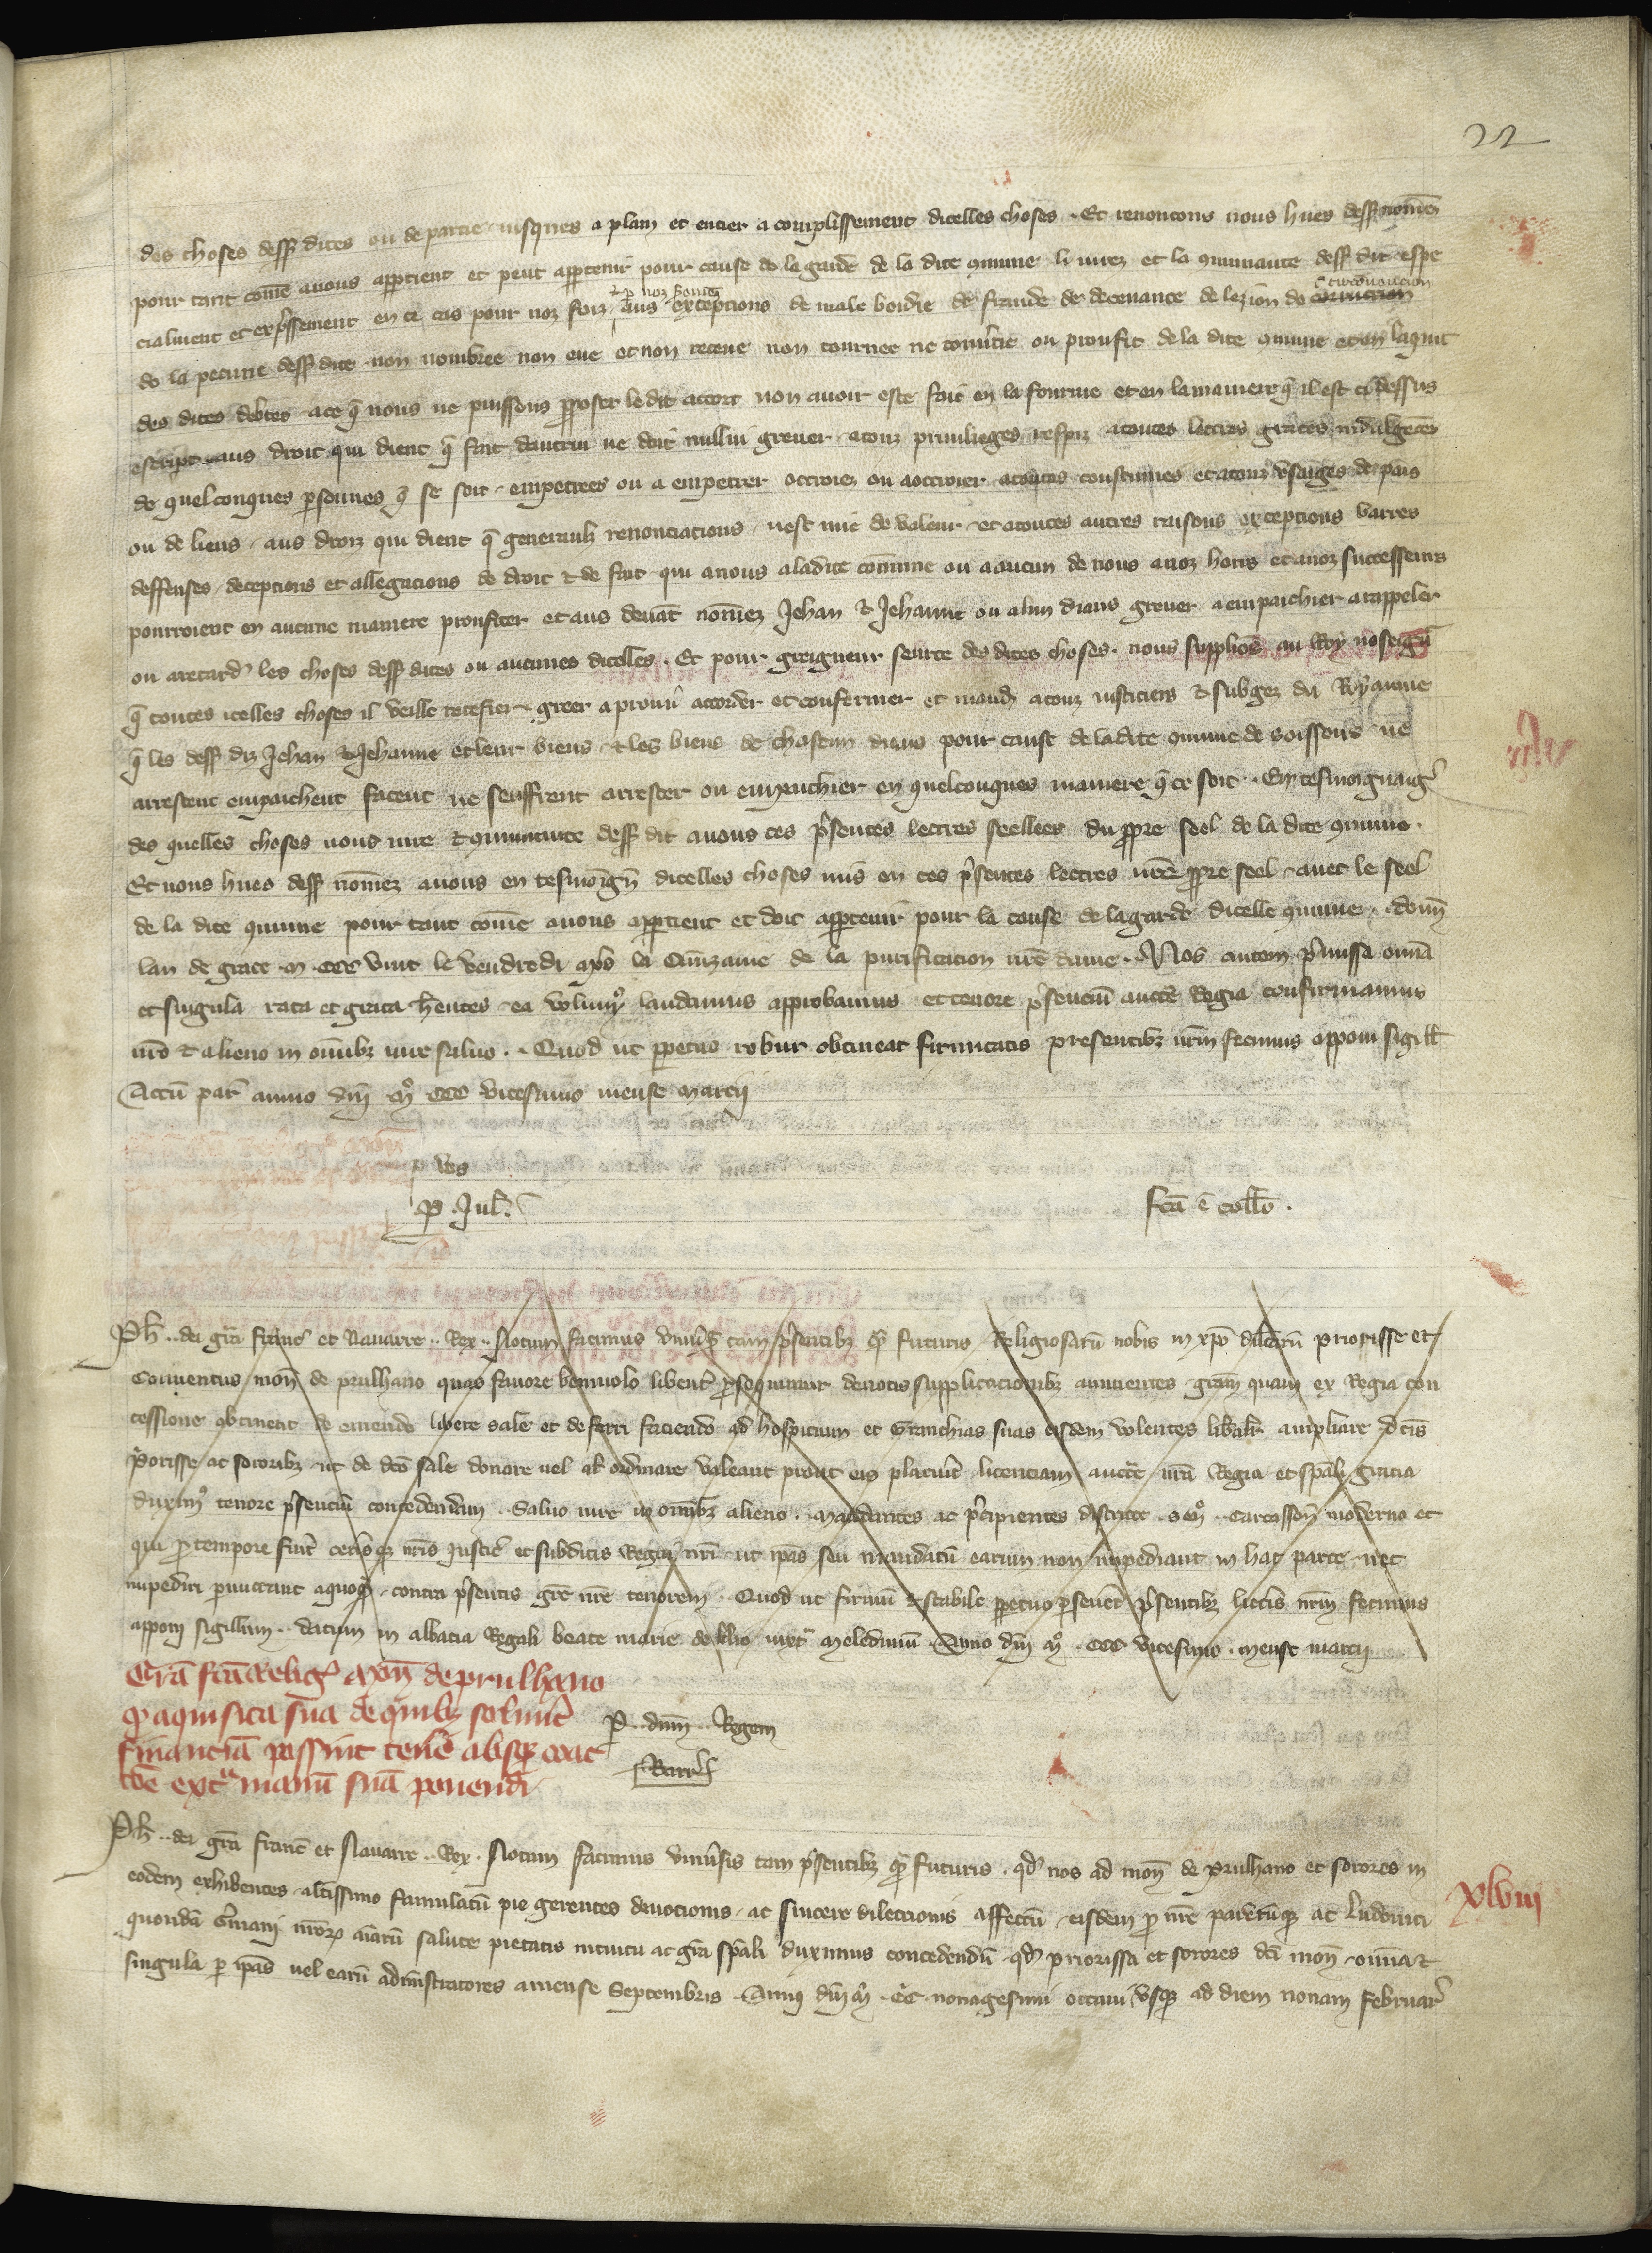 22
des choses dess dites ou de partie iusques a plain et entier acomplissement dicelles choses . Et renoncons nous hues dess nomez
pour tant come a nous appartient et peut appartenir pour cause de la garde de la dite commune li iurez et la communaute dess dit espe
& p noz hanz circonuencion
cialment et expressement en ce cas pour noz foiz aus exceptions de male boidie de fraude de deceuance de lezion de coruncion
de la pecune dess dite non nombree non eue et non receue non tournee ne conuertie ou proufit de la dite commune et en laquit
des dites debtes ace que nous ne puissons proposer le dit acort non auoir este fait en la fourme et en la maniere que il est ci dessus
escript aus droit qui dient que fait dautrui ne doit nullui greuer atouz priuileges respiz atoutes lettres graces indulgences
de quelconques personnes que se soit empetrees ou a empetrer octroiez ou aoctroier atoutes coustumes et atouz vsaiges de pais
ou de lieus aus droiz qui dient que generaulz renonciations nest mie de valeur et atoutes autres raisons exceptions barres
deffenses deceptions et allegacions de droit & de fait qui anous aladite commune ou aaucun de nous anoz hoirs et anoz successeurs
pourroient en aucune maniere proufiter et aus deuat nomez Jehan & Jehanne ou alun diaus greuer aempaichier arappeler
ou aretarder les choses dess dites ou aucunes dicelles . Et pour greigneur seurte des dites choses . nous supplios au Roy noseigur
que toutes icelles choses il veille totefier greer aprouuer accorder et confermer et mander atouz iusticiers & subgez du Royaume
que les dess diz Jehan & Jehanne et leur biens & les biens de chascun diaus pour cause de ladite commune de soissons ne
arrestent empaichent facent ne seuffrent arrester ou empeechier en quelconques maniere que ce soit . En tesmoignaige
des quelles choses nous iure & communaute dess dit auons ces presentes lettres seellees du propre seel de la dite commune .
Et nous hues dess nomez auons en tesmoign dicelles choses mis en ces presentes lettres nre propre seel auec le seel
de la dite commune pour tant come anous appartient et doit appartenir pour la cause de lagarde dicelle commune . donn
lan de grace m ccc vint le vendredi apres la Quinzaine de la purification nre dame . Nos autem premissa omia
et singula rata et grata hentes ea volumus laudamus approbamus et tenore presencium aucte Regia confirmamus
nro & alieno in omibz iure saluo . Quod ut perpetuo robur obtineat firmitatis presentibz nrm fecimus apponi sigill
Actu par anno dni mo ccc vicesimo mense marcij
p vos
P . Jul . fca e collo .
Ph . . dei gra franc et Nauarre . . Rex . . Notum facimus vniusis tam presentibz quam futuris Religiosaru nobis in xpo dilectaru priorisse et
Conuentus mon de prulhano quas fauore beniuolo libenter prosequimur deuotis supplicacionibz annuentes gram quam ex Regia con
cessione obtinent de emendo libere sale et deferri faciendo ad hospicium et Granchias suas eisdem volentes liberaliter ampliare dcis
priorisse ac sororibz ut de dco sale donare uel al ordinare valeant prout eis placuerit licenciam aucte nra Regia et spali gracia
duximus tenore presenciu concedendam . Saluo iure in omibz alieno . Mandantes ac precipientes districte seno . . Carcasson moderno et
qui pro tempore fuit ceterisque nris Justic et subditis Regni nri ut ipas seu mandatu earum non impediant in hac parte nec
impediri permittant aquoquam contra presentis gre nre tenorem . Quod ut firmu & stabile perpetuo perseueret presentibz litteris nrm fecimus
apponi sigillum . . datum in abbacia Regali beate marie de lilio iuxta meledunum . Anno dni mo . ccc vicesimo . mense marcij
Gra fca relig mon de prulhano
qd aquisita sua de quibz soluit
financia possint tenere absque coac
coe extra manu sua ponendi
P . . dnm . . Regem
Barr
Ph . . dei gra franc et Nauarre . . Rex . Notum facimus vniusis tam presentibz quam futuris . qd nos ad mon de prulhano et sorores in
eodem exhibentes altissimo famulatu pie gerentes deuocionis ac sincere dilectionis affectu eisdem pro nre parentuque ac ludouici
xlviij
quonda germani nror aiaru salute pietatis intuitu ac gra spali duximus concedendu qd priorissa et sorores dci mon omia &
singula per ipas uel earu administratores amense Septembris . Anno dni m . cc . nonagesimi octaui vsque ad diem nonam februar